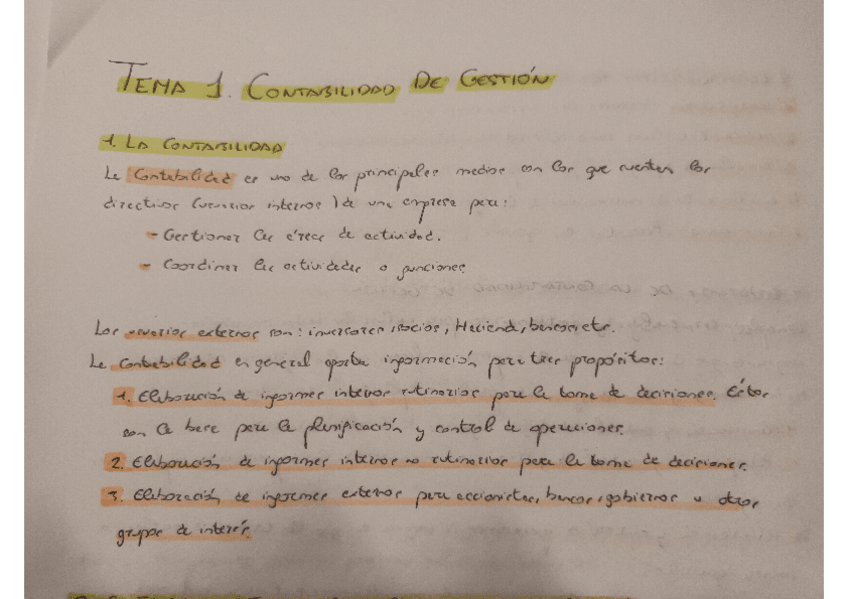 TEMA 1. CONTABILIDAD DE GESTIÓN
1. LA CONTABILIDAD
La Contabilidad es uno de los principales medios con los que cuentan los
directivos (usuarios internos) de una empresa para:
- Gestionar las áreas de actividad.
- Coordinar las actividades o funciones.
Los usuarios externos son: inversores, socios, Hacienda, bancos, etc.
La contabilidad en general aporta información para tres propósitos:
1. Elaboración de informes internos rutinarios para la toma de decisiones. Éstos
son la base para la planificación y control de operaciones.
2. Elaboración de informes internos no rutinarios para la toma de decisiones.
3. Elaboración de informes externos para accionistas, bancos, gobiernos u otros
grupos de interés.